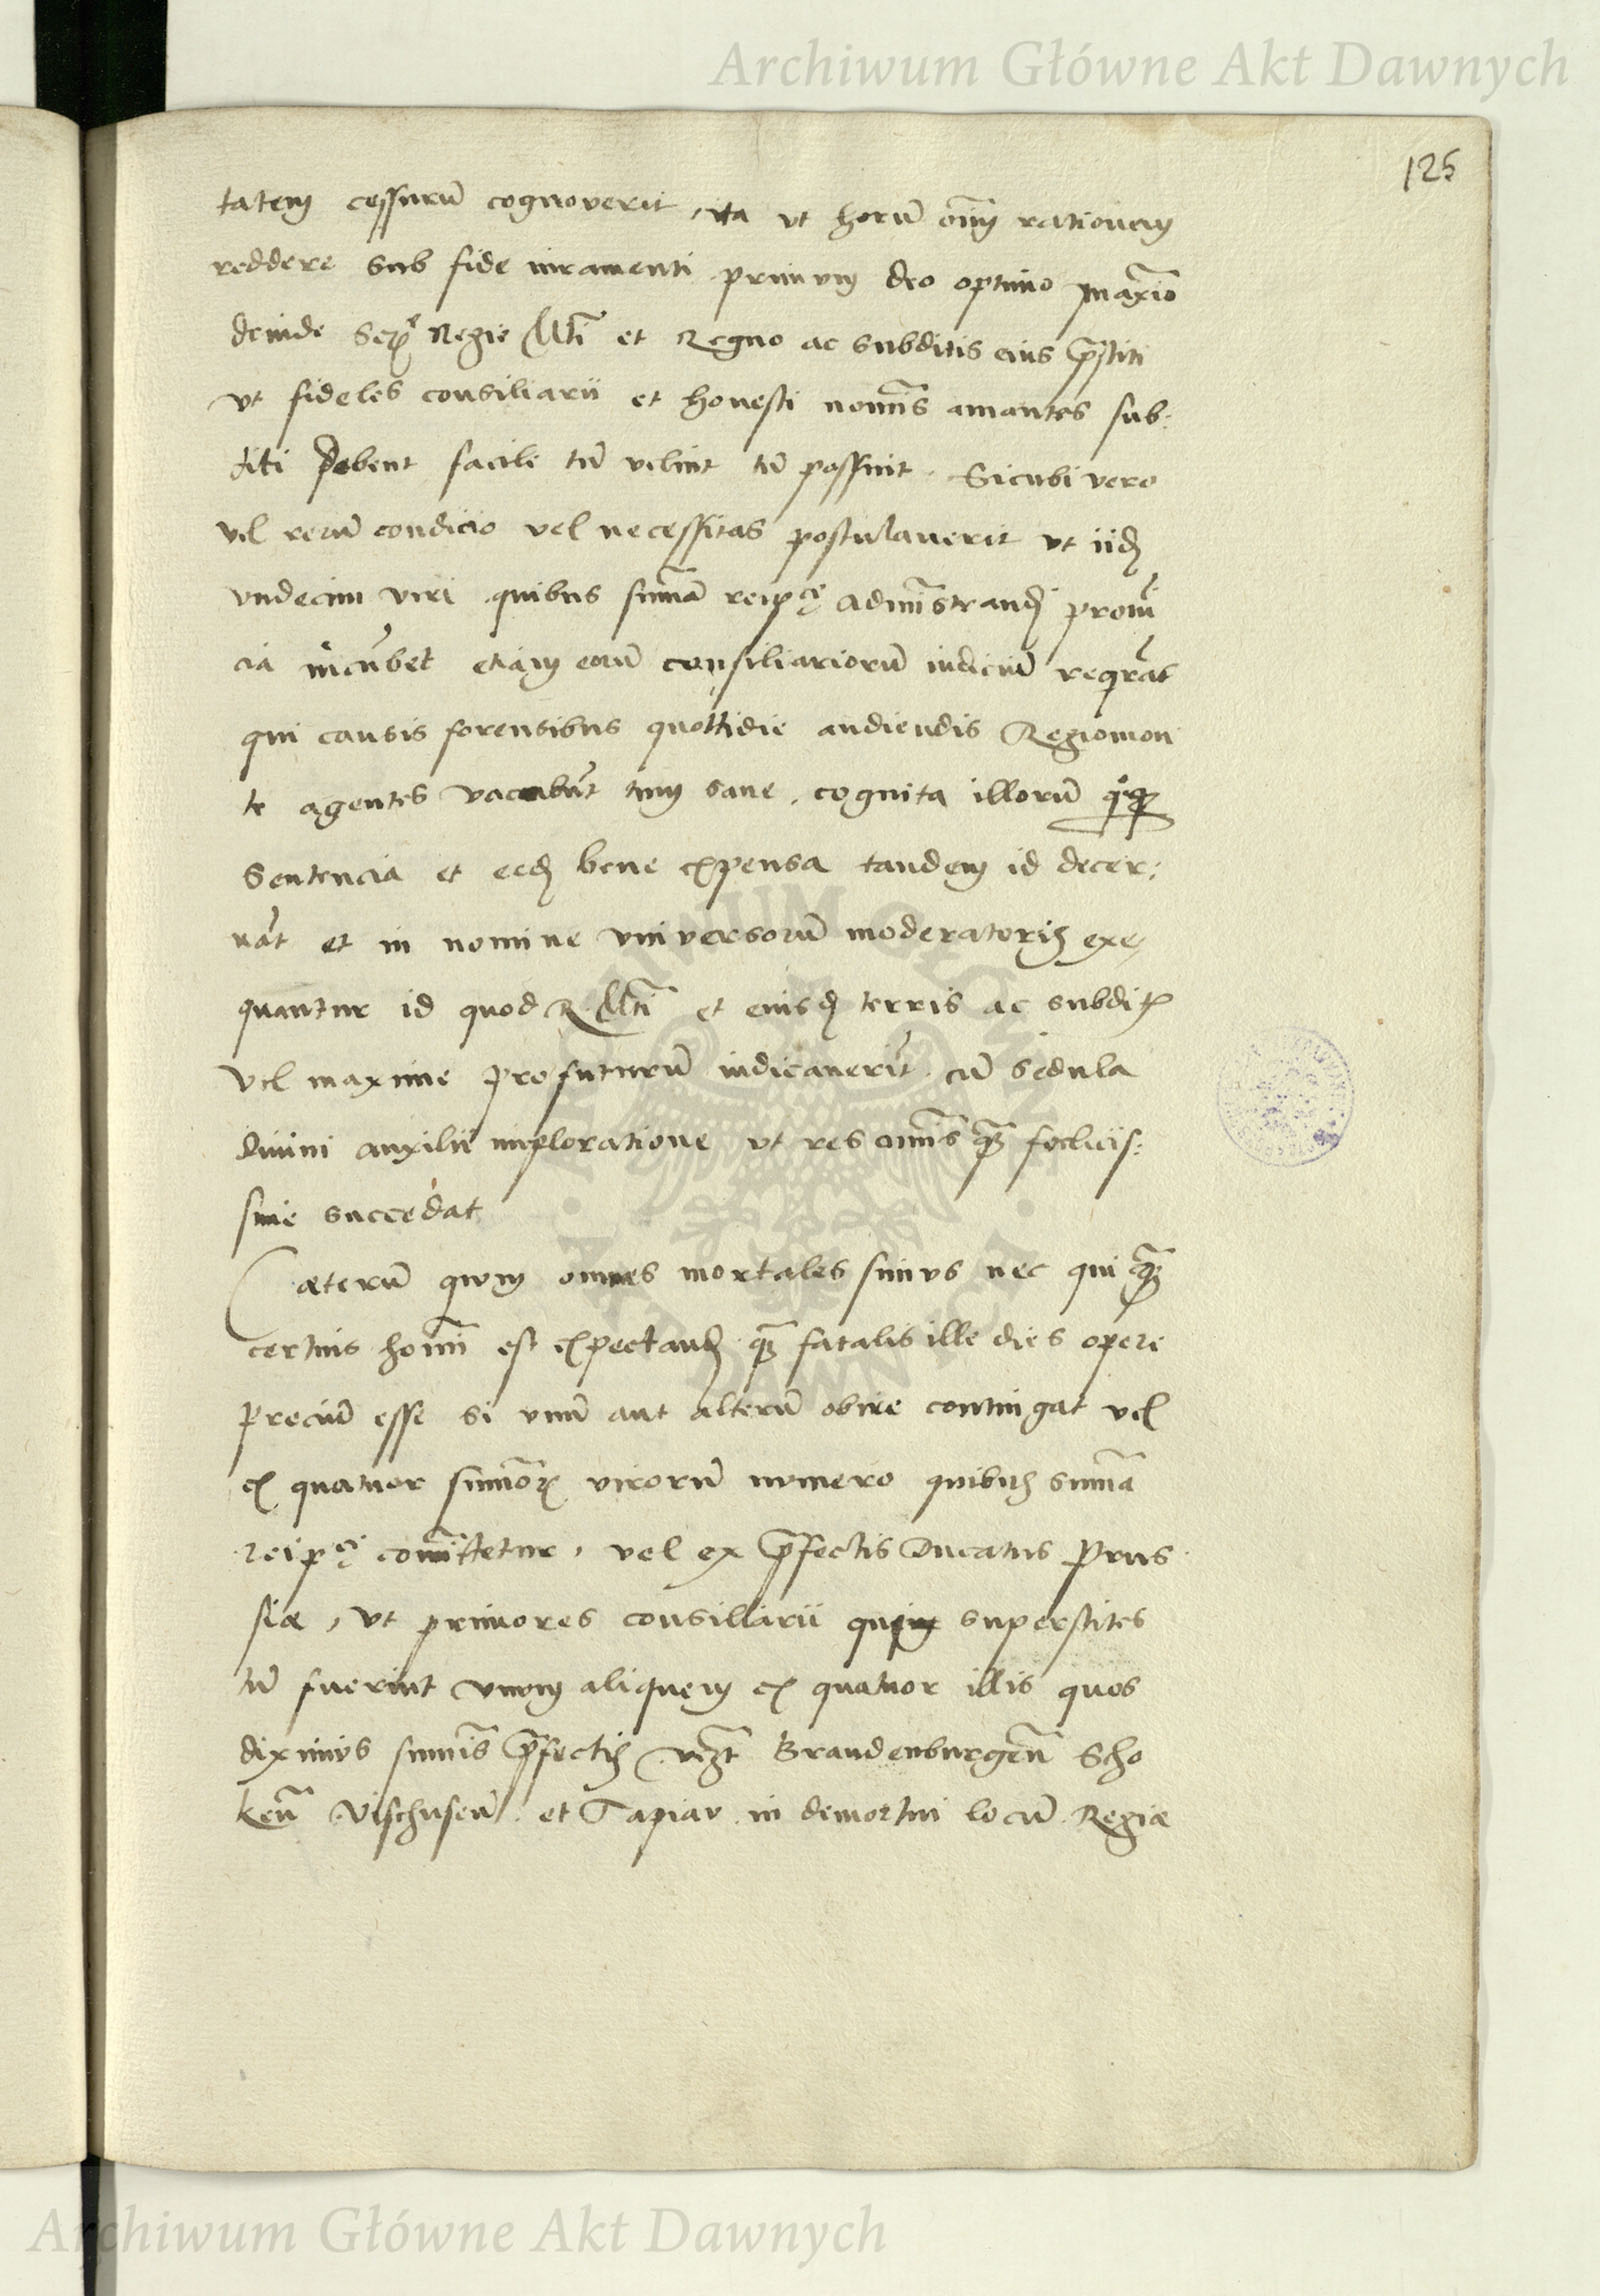 Archiwum Główne Akt Dawnych
125
tatem cessurū cognoverit, ita ut horū om̄m rationem
reddere sub fide iuramenti primum deo optimo maxīo
deinde Seren Regie Mti et Regno ac subditis eius p̄stiti
ut fideles consiliarii et honesti nomīs amantes sub:
diti debent facile tū velint tū possint. Sicubi vero
vel rerū condicio vel necessitas postulaverit ut iid
undecim viri quibus sum̄a reip administrand provī
cia incūbet etiam eorū consiliariorū iudiciū reqrāt
qui causis forensibus quottidie audiendis Regiomon
te agentes vacabūt tum sane, cognita illorū qoq
sentencia et ead bene expensa tandem id decer:
nāt et in nomine universorū moderatoris exe,
quantur id quod R Mti et eiusd terris ac subditis
vel maxime profuturū iudicaverīt cū sedula
divini auxilii imploratione ut res om̄is q̄ foeliciss:
sime succedat
Caeterū quum omnes mortales simus nec qui q̄
certius homī est expectand q̄ fatalis ille dies opere
preciū esse si unū aut alterū obire contingat vel
ex quatuor sum̄or virorū numero quibus sum̄a
reip com̄ittetur, vel ex p̄fectis Ducatus Prus
siae, ut primores consiliarii quum superstites
tū fuerint unum aliquem ex quatuor illis quos
diximus sum̄is p̄fectis vizt Brandenburgen̄ Scho
ken̄ Vischusen̄. et Tapiav. in demortui locū Regiae
Archiwum Główne Akt Dawnych